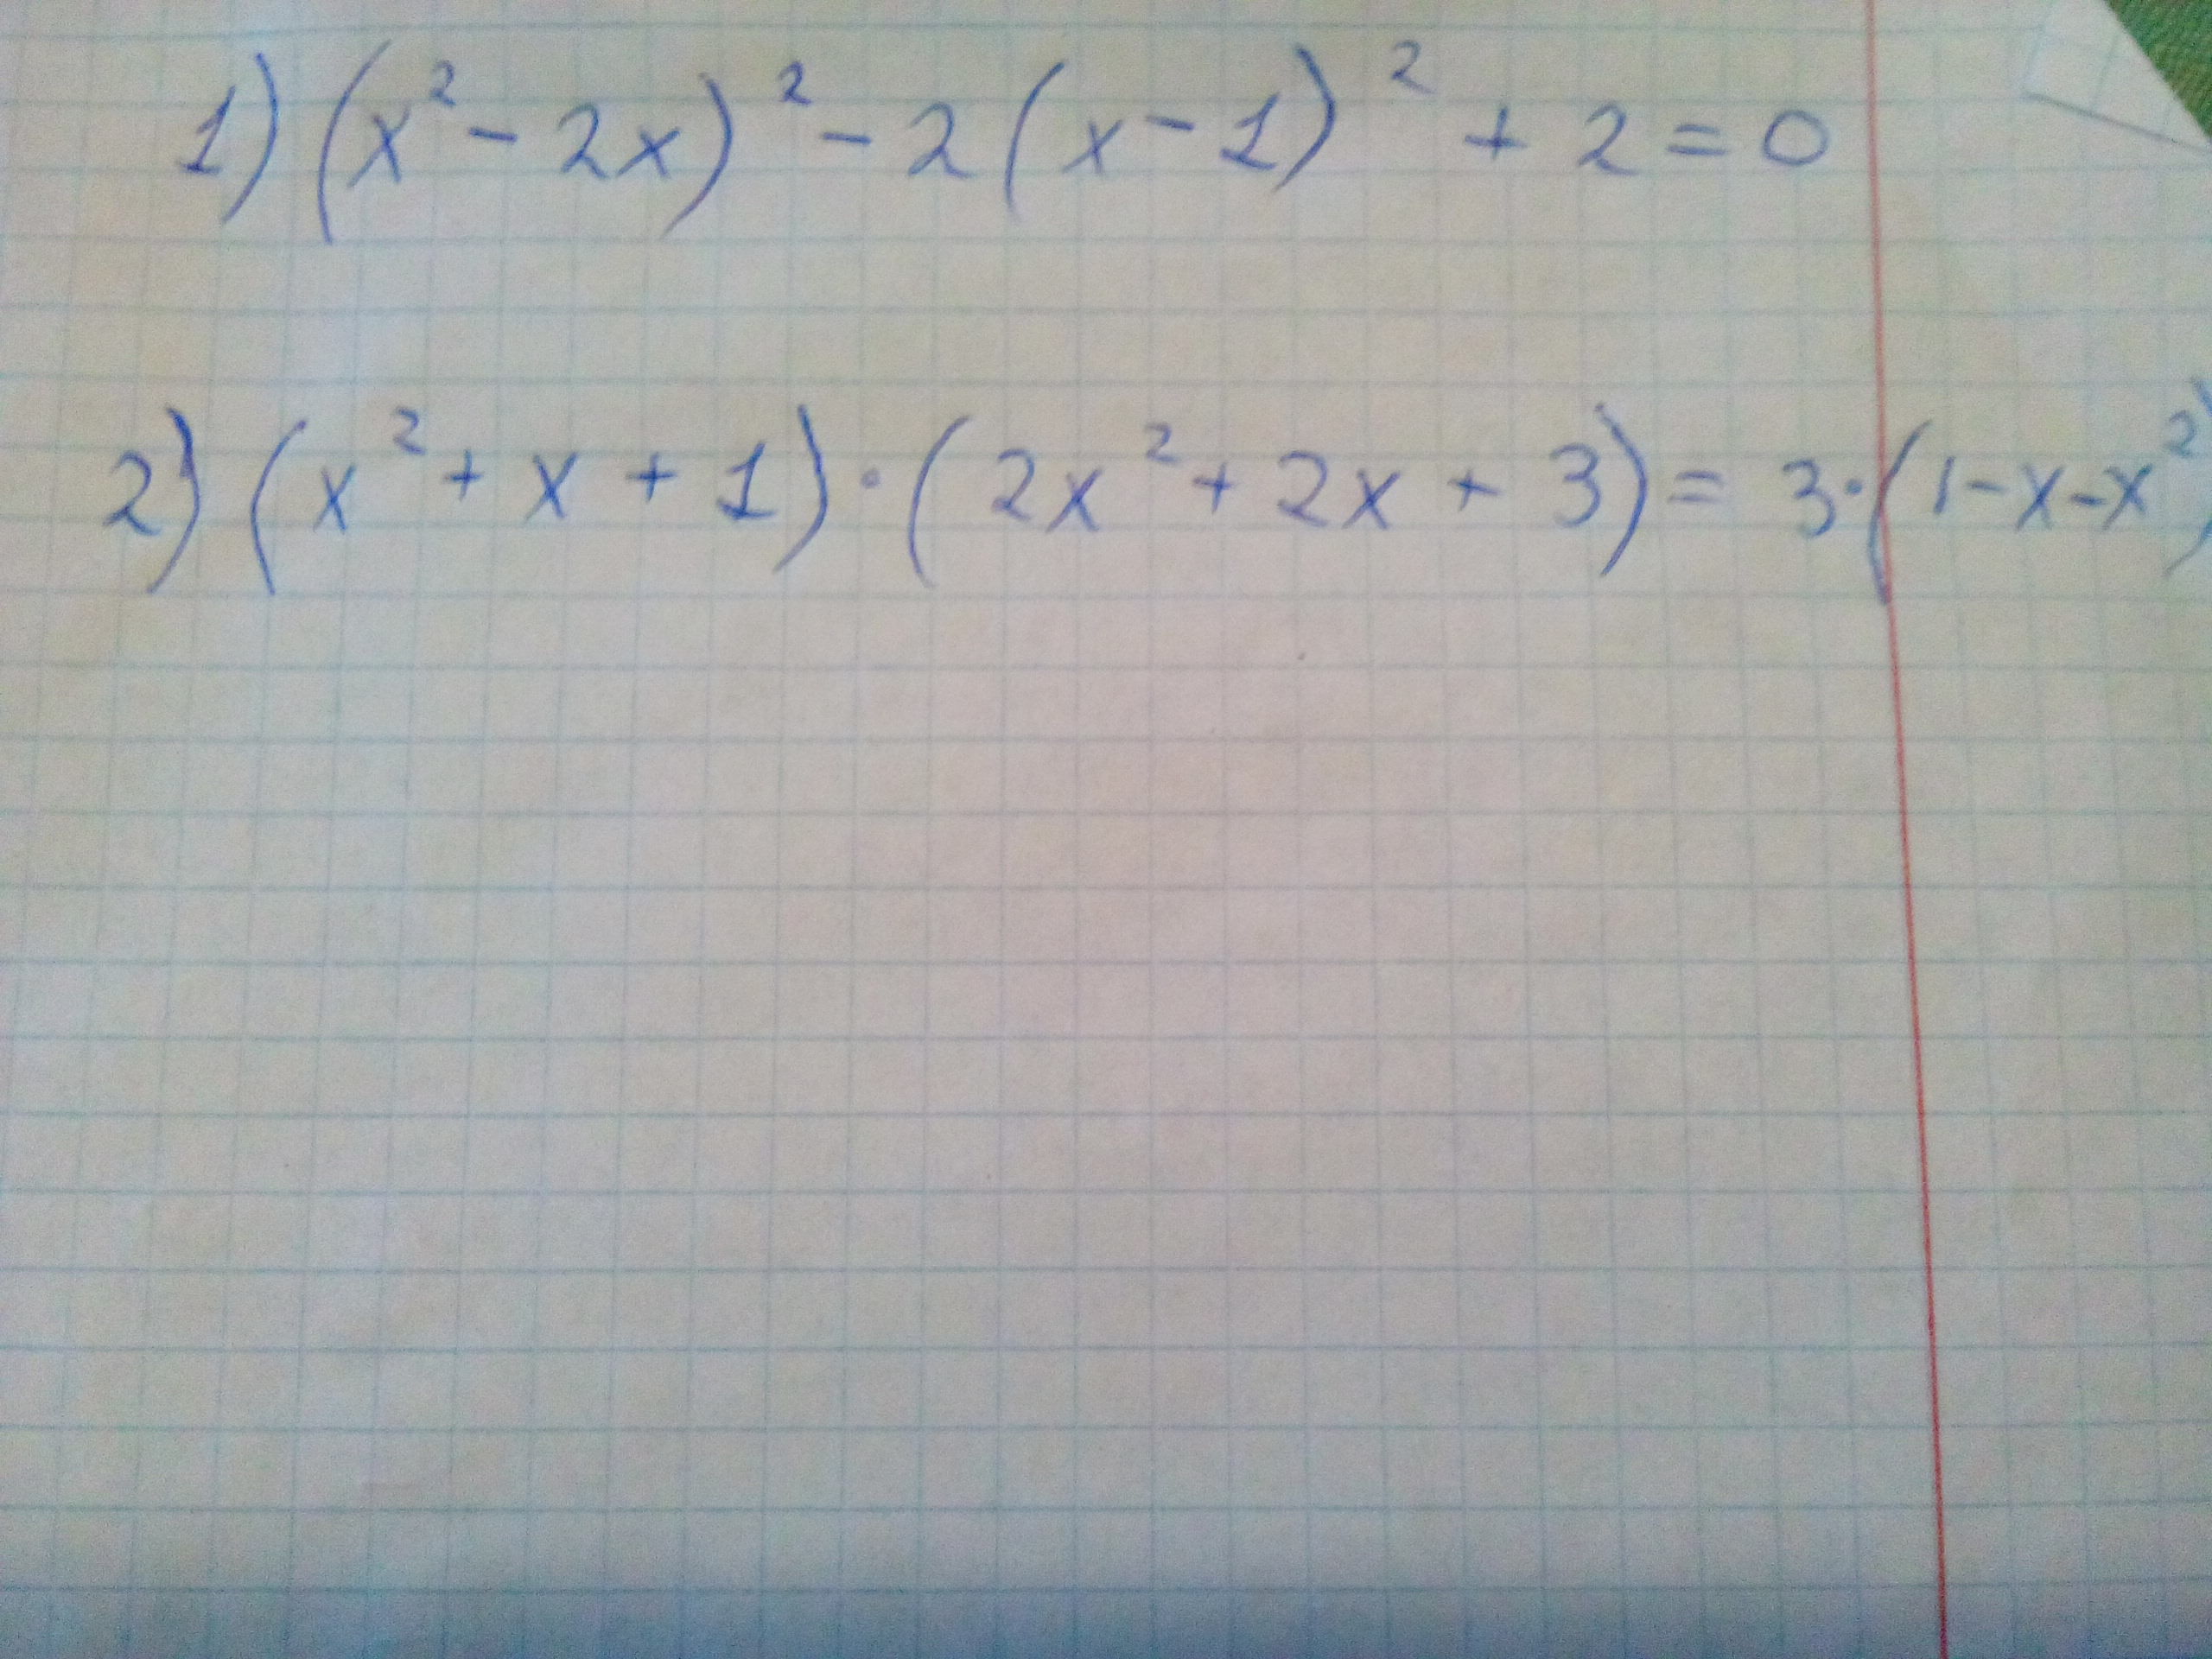 1) (x² - 2x)² - 2(x - 1)² + 2 = 0
2) (x² + x + 1) · (2x² + 2x + 3) = 3 · (1 - x - x²)